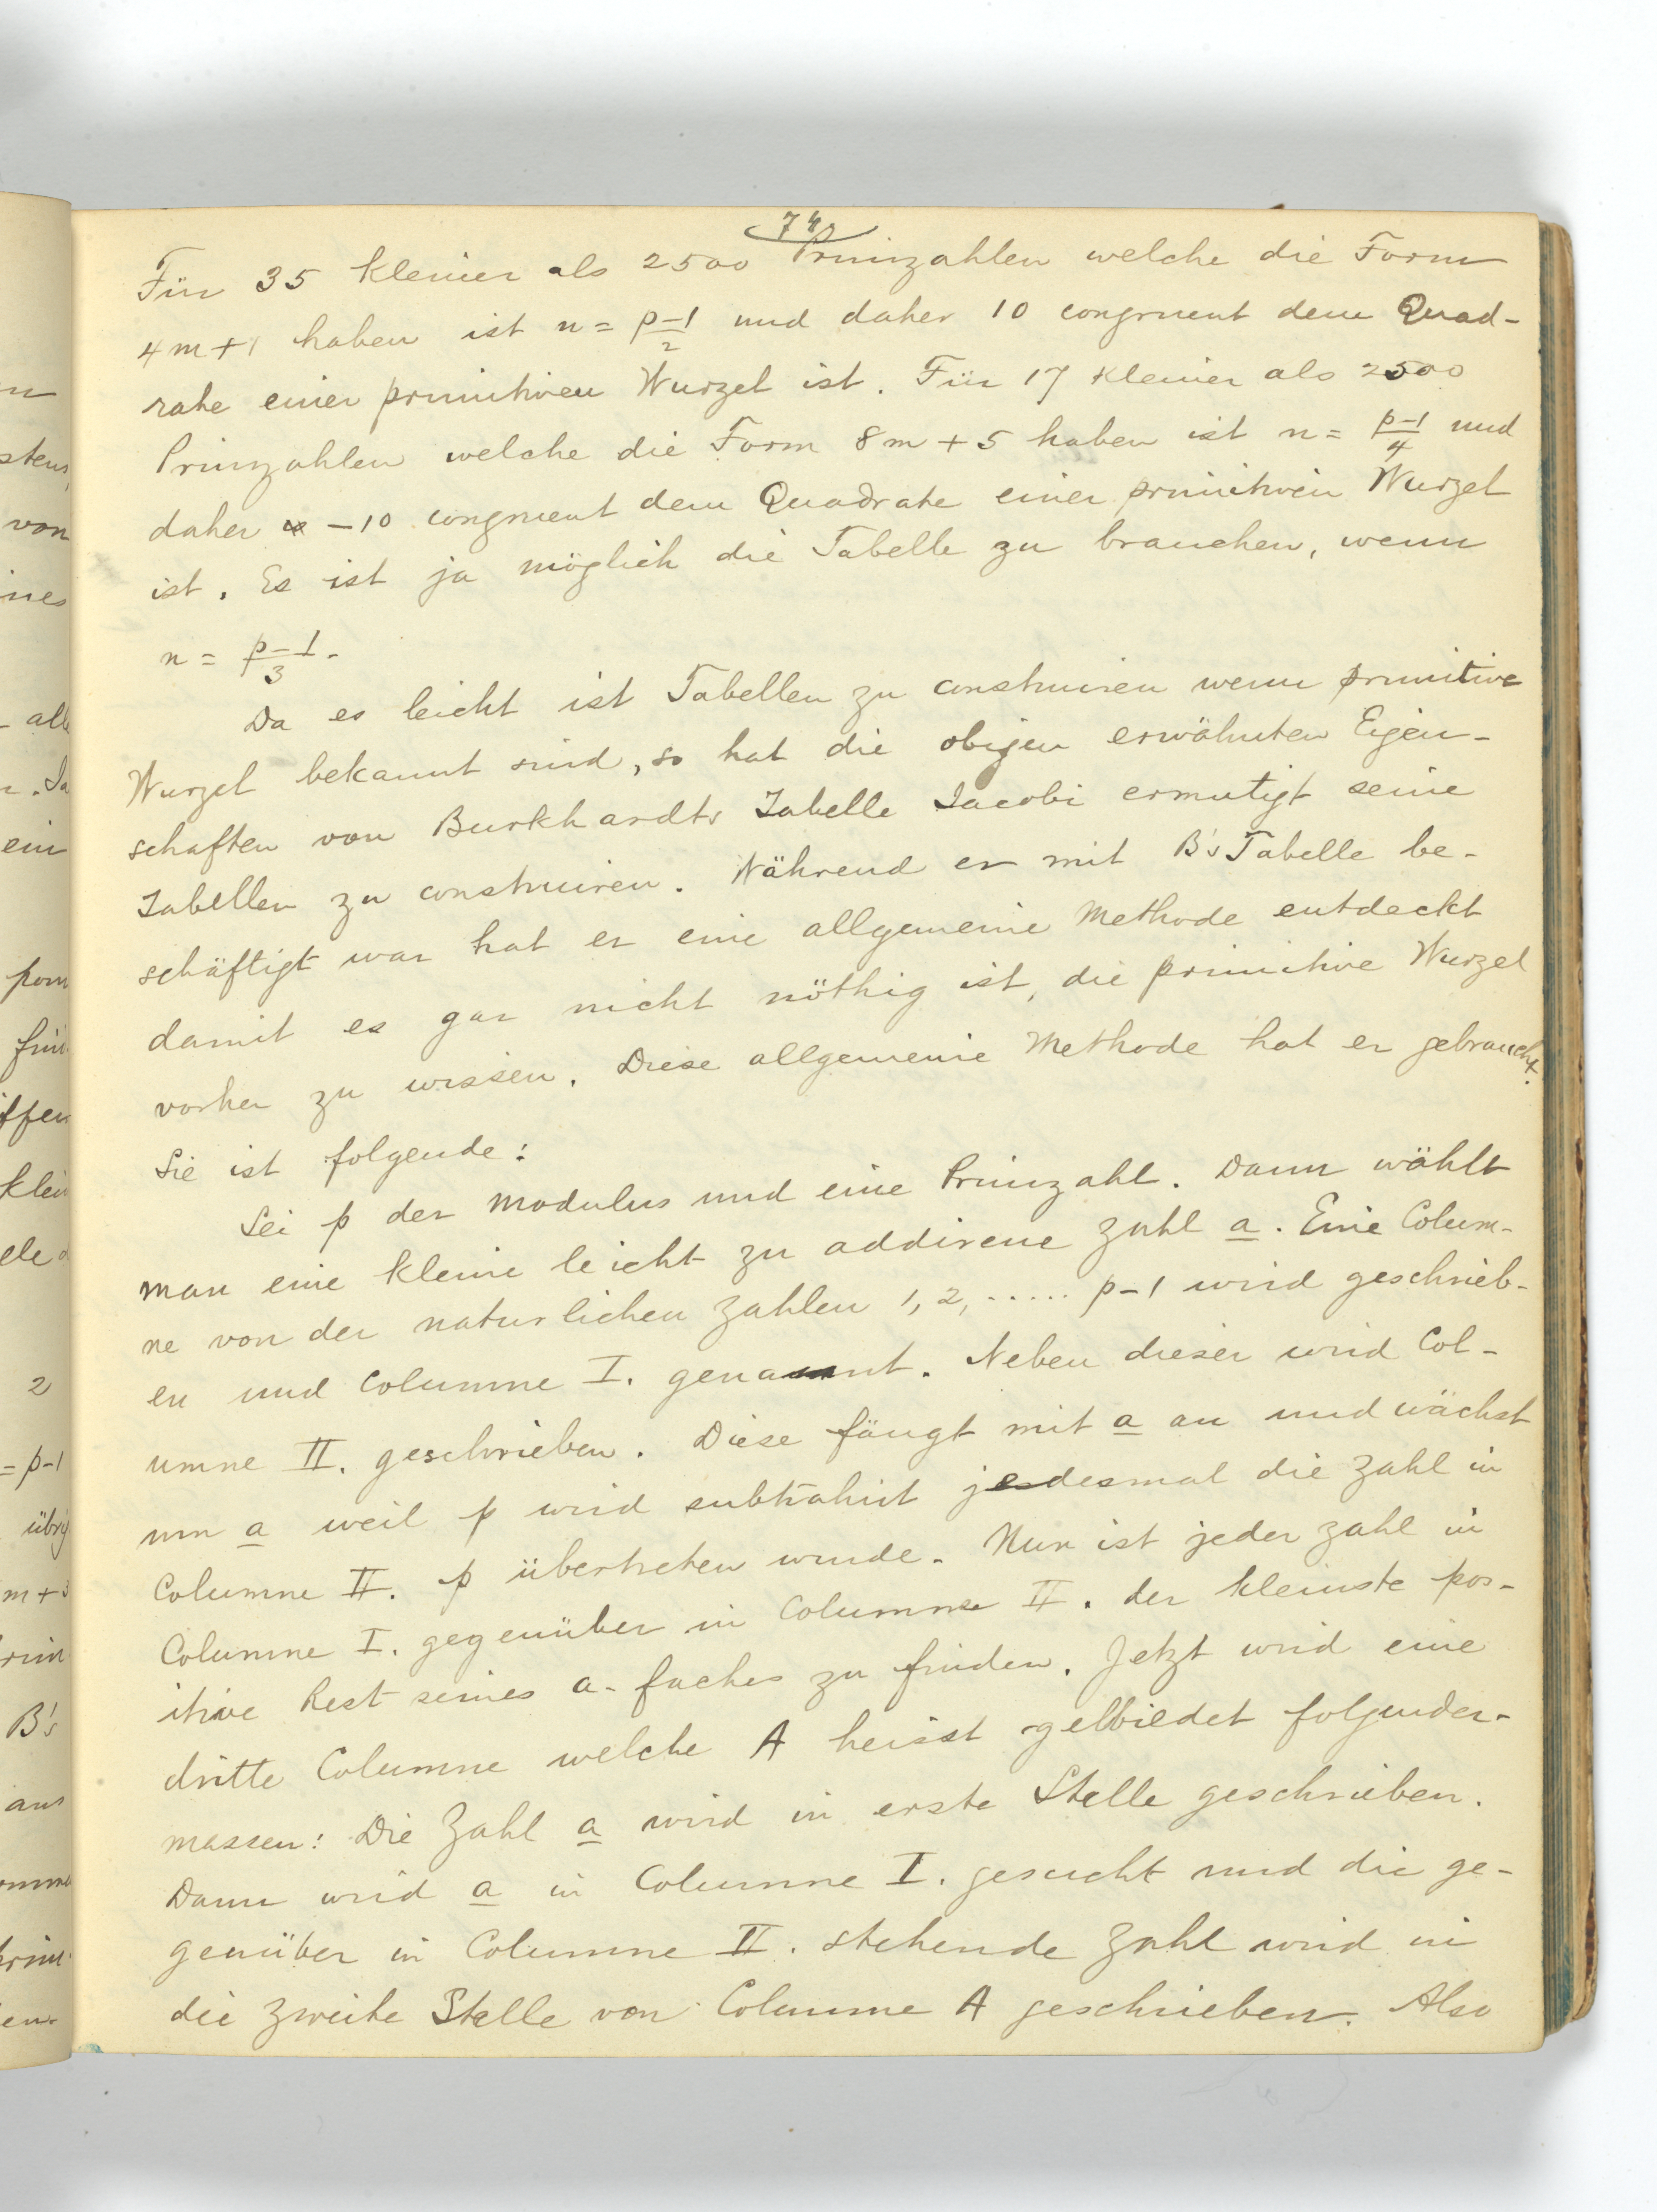 74
Für 35 kleiner als 2500 Primzahlen welche die Form
4m+1 haben ist n = p-1/2 und daher 10 congruent dem Quad-
rate einer primitiven Wurzel ist. Für 17 kleiner als 2500
Primzahlen welche die Form 8m+5 haben ist n = p-1/4 und
daher -10 congruent dem Quadrate einer primitiven Wurzel
ist. Es ist ja möglich die Tabelle zu brauchen, wenn
n = p-1/3.
Da es leicht ist Tabellen zu construiren wenn primitive
Wurzel bekannt sind, so hat die obigen erwähnten Eigen-
schaften von Burkhardts Tabelle Jacobi ermutigt seine
Tabellen zu construiren. Während er mit B's Tabelle be-
schäftigt war hat er eine allgemeine Methode entdeckt
damit es gar nicht nöthig ist, die primitive Wurzel
vorher zu wissen. Diese allgemeine Methode hat er gebraucht.
Sie ist folgende:
Sei p der Modulus und eine Primzahl. Dann wählt
man eine kleine leicht zu addirene Zahl a. Eine Colum-
ne von der naturlichen Zahlen 1, 2, ..... p-1 wird geschrieb-
en und Columne I. genannt. Neben dieser wird Col-
umne II. geschrieben. Diese fängt mit a an und wächst
um a weil p wird subtrahirt jedesmal die Zahl in
Columne II. p übertreten wurde. Nun ist jeder Zahl in
Columne I. gegenüber in Columne II. der kleinste pos-
itive Rest seines a-faches zu finden. Jetzt wird eine
dritte Columne welche A heisst gelbiedet folgender-
massen: Die Zahl a wird in erste Stelle geschrieben.
Dann wird a in Columne I. gesucht und die ge-
genüber in Columne II. stehende Zahl wird in
die zweite Stelle von Columne A geschrieben. Also